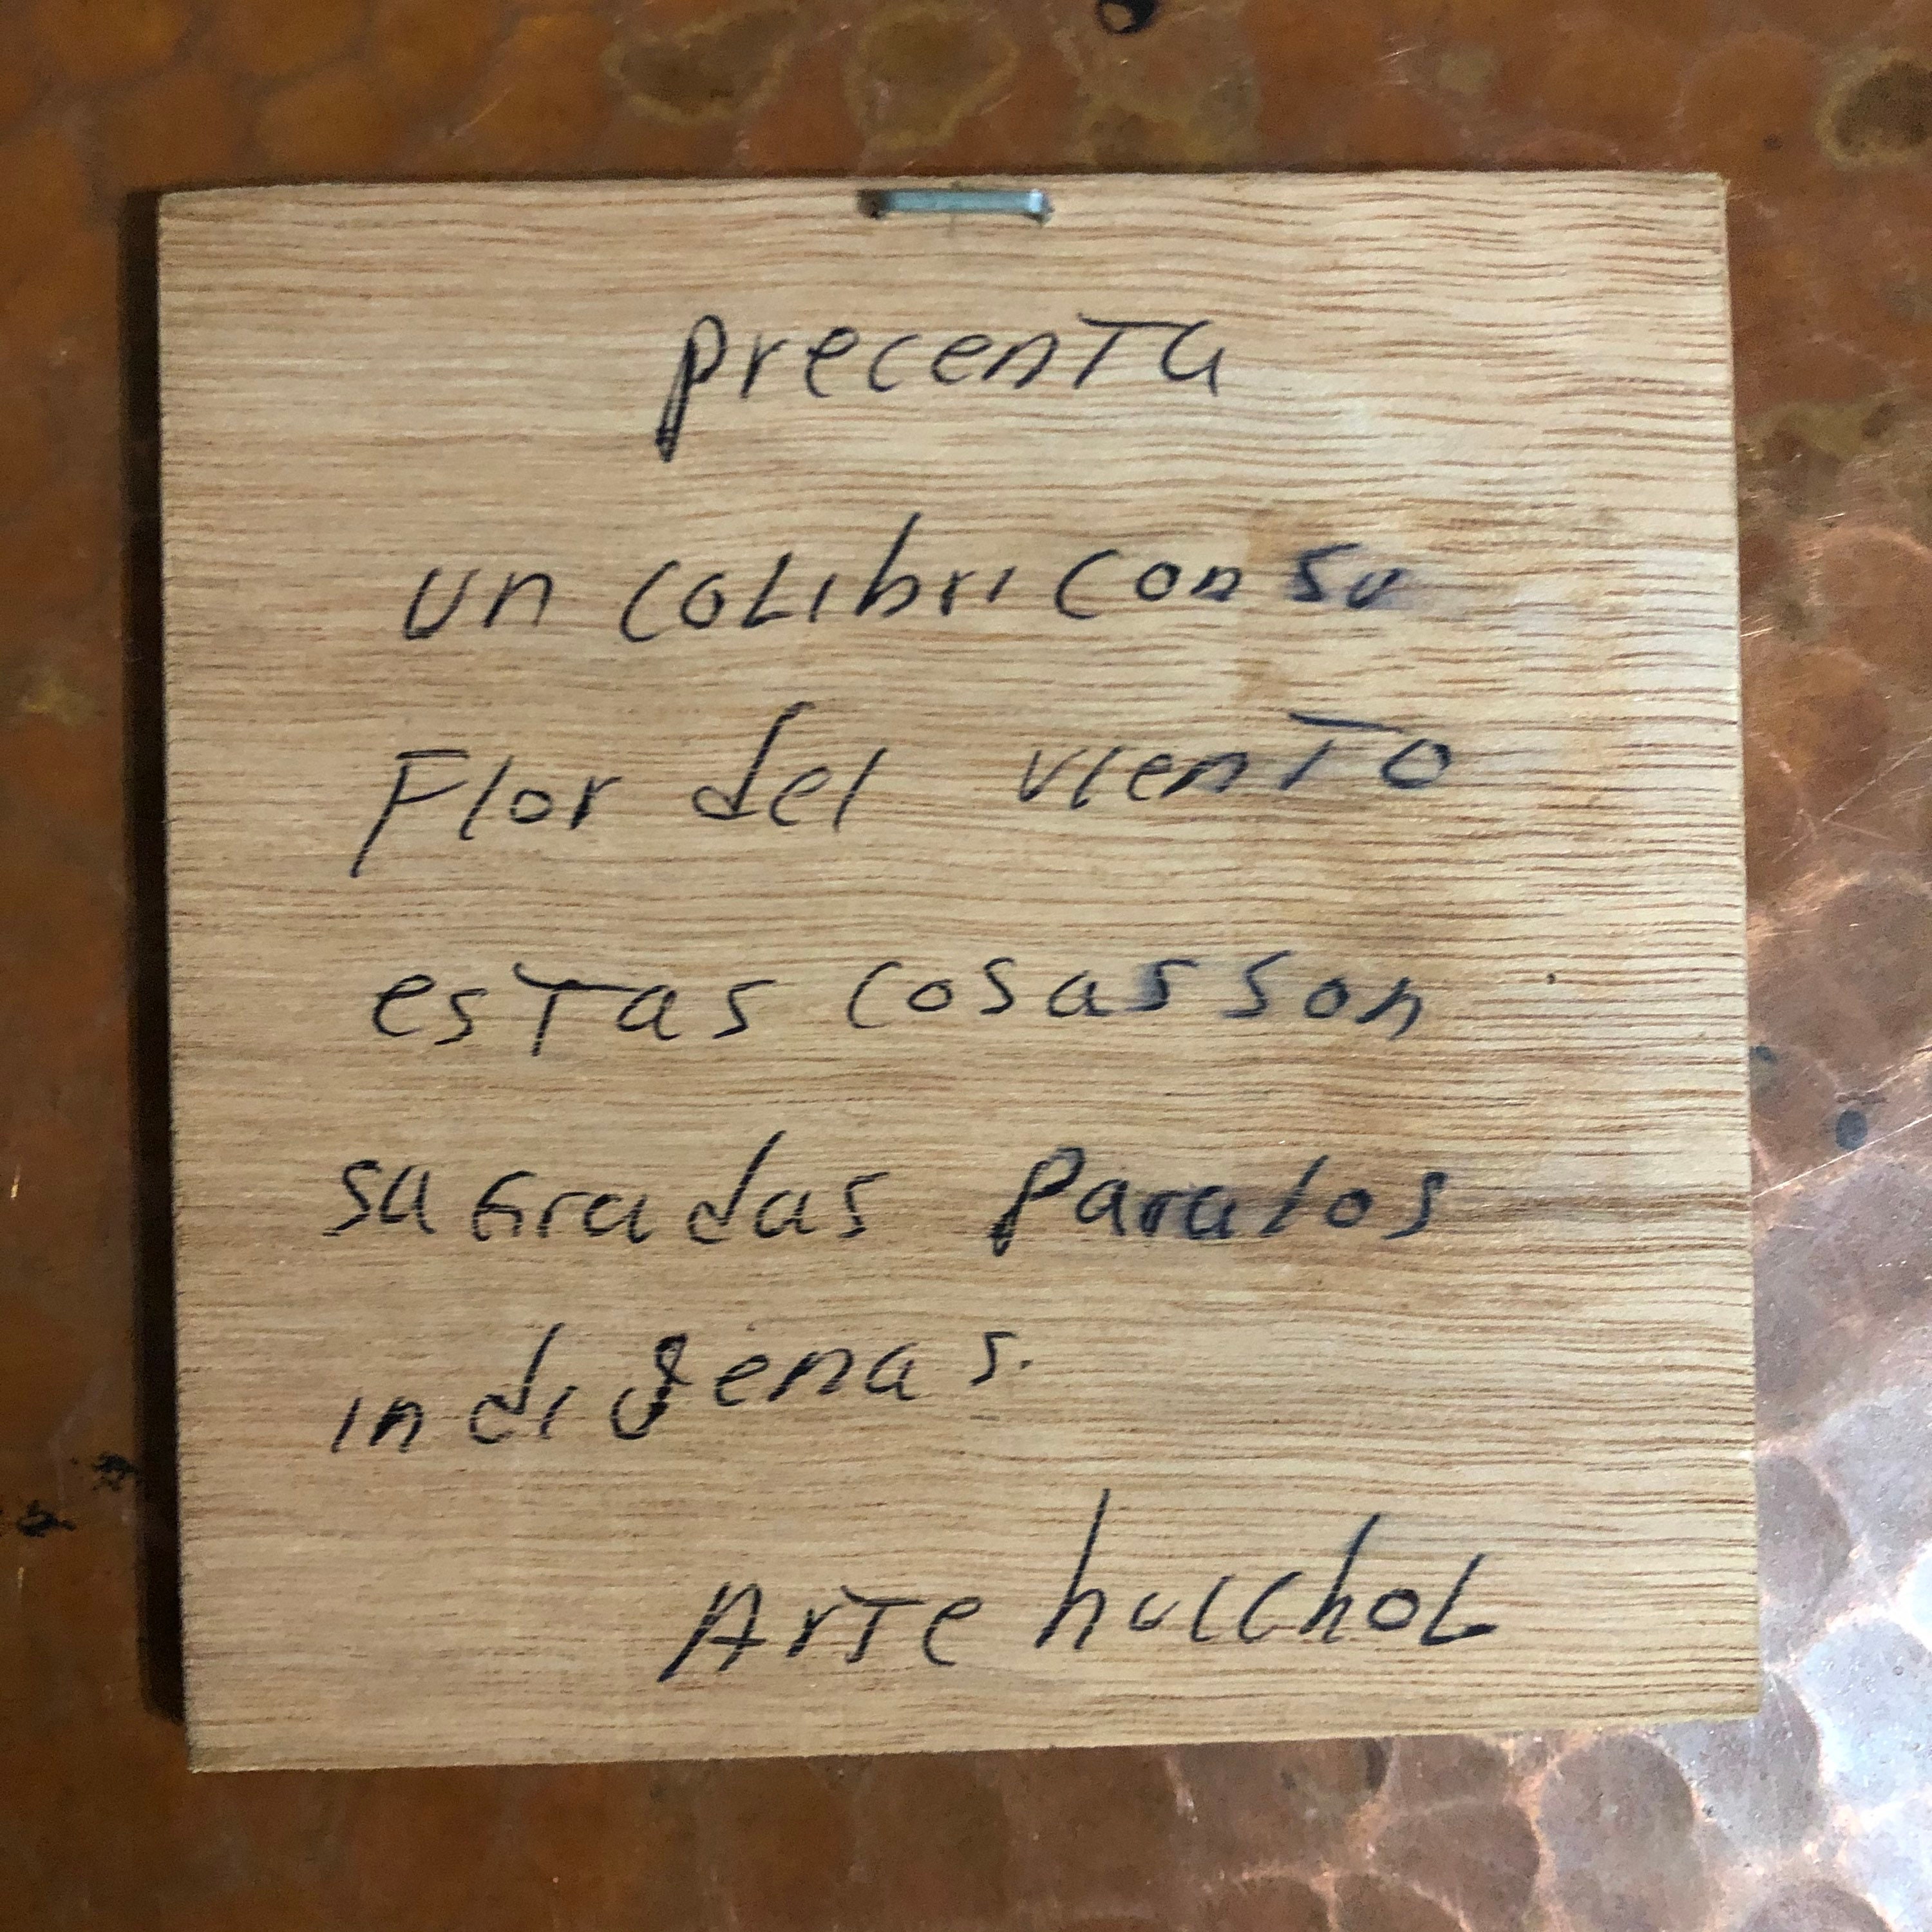 precenta
un coLibri con su
Flor del viento
estas cosas son
saGradas para los
indigenas.
Arte huichoL